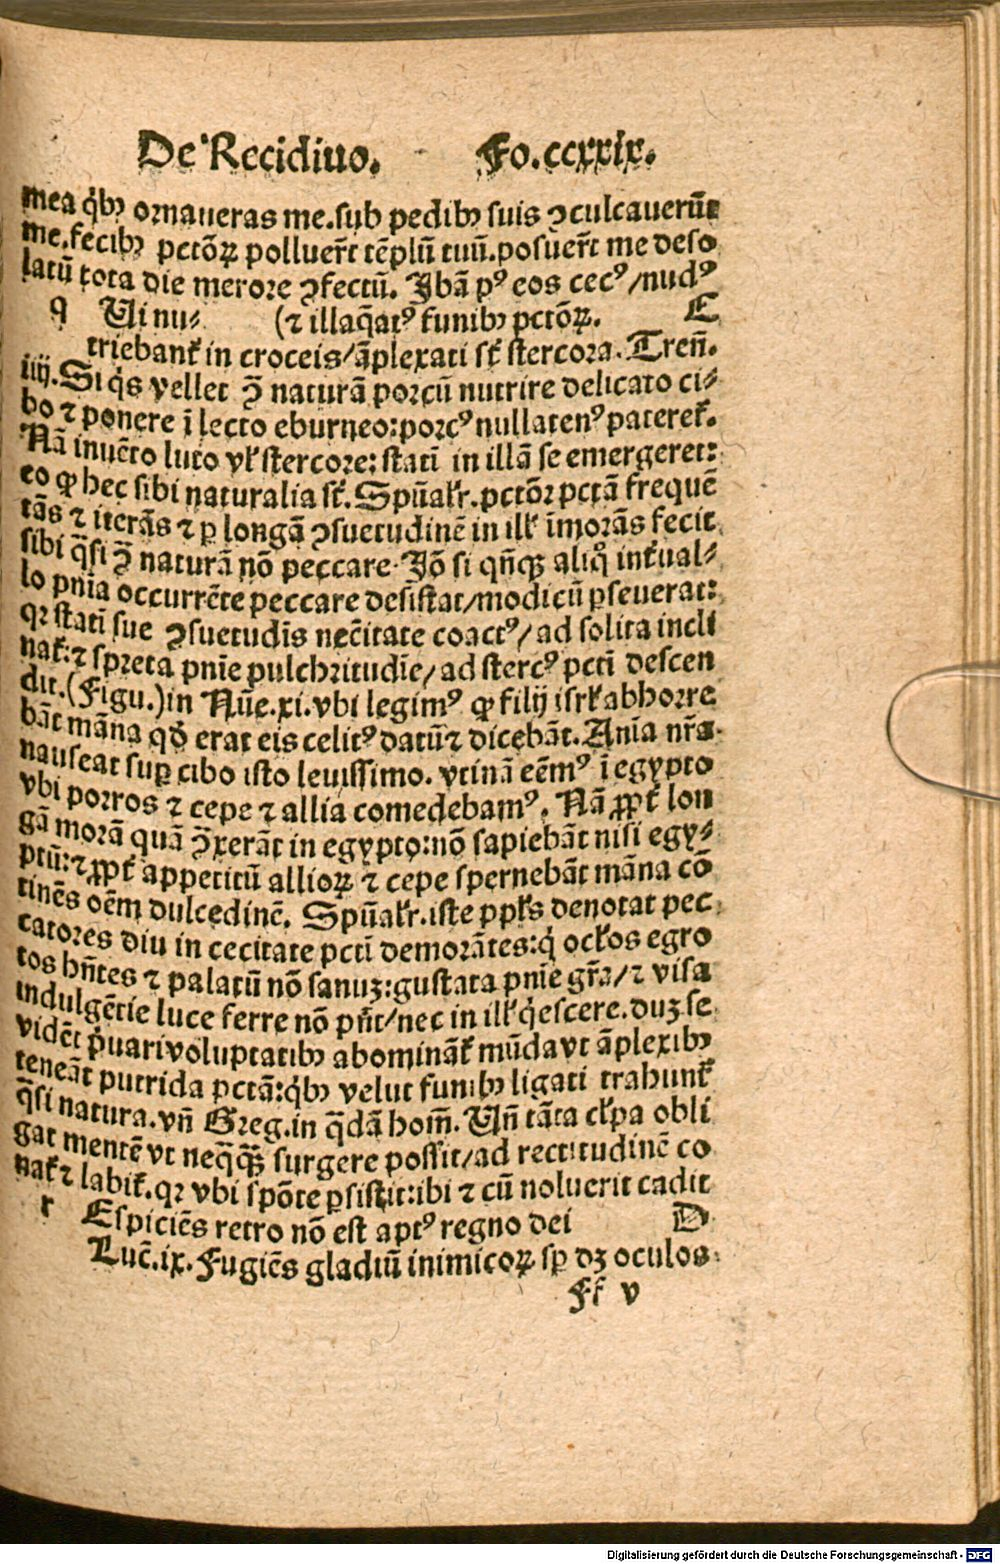 De Recidiuo. Fo.ccxxix.
mea q̇bꝰ ornaueras me.sub pedibꝰ suis ꝯculcauerūt
me.fecibꝰ pctōꝝ polluer̄t tēplū tuū.posuer̄t me deso
latū tota die merore ꝯfectū. Jbā pꝰ eos cecꝰ/nudꝰ
q Ui nu⸗ (⁊ illaq̄atꝰ funibꝰ pctōꝝ. E
triebant̄ in croceis/āplexati st̄ stercora. Tren̄.
iiij.Si q̇s vellet ꝯ̄ naturā porcū nutrire delicato ci⸗
bo ⁊ ponere ī lecto eburneo:porcꝰ nullatenꝰ pateret̄.
Nā inuēto luto vl̄ stercore: statī in illā se emergeret:
eo ꝙ hec sibi naturalia st̄. Spūalr̄. pctōr pctā frequē
tās ⁊ iterās ⁊ ꝑ longā ꝯsuetudinē in ill̄ īmorās fecit
sibi q̄si ꝯ̄ naturā nō peccare. Jō si qn̄qꝫ aliq̊ int̄ual⸗
lo pnīa occurrēte peccare desistat/modicū ꝑseuerat:
qꝛ statī sue ꝯsuetudīs nec̄itate coactꝰ/ad solita incli
nat̄:⁊ spreta pnīe pulchritudīe/ad stercꝰ pctī descen
dit.(Figu.)in Nūe.xi.vbi legimꝰ ꝙ filij isrl̄ abhorre
bāt māna qđ erat eis celitꝰ datū⁊ dicebāt.Anīa nr̄a
nauseat suꝑ cibo isto leuissimo. vtinā eēmꝰ ī egypto
vbi porros ⁊ cepe ⁊ allia comedebamꝰ. Nā ꝓpt̄ lon
gā morā quā ꝯ̄xerāt in egypto:nō sapiebāt nisi egy⸗
ptū:⁊ ꝓpt̄ appetitū allioꝝ ⁊ cepe spernebāt māna cō
tinēs oēm dulcedinē. Spūalr̄.iste ppl̄s denotat pec
catores diu in cecitate pctī demorātes:q̇ ocl̄os egro
tos hn̄tes ⁊ palatū nō sanuꝫ:gustata pnīe gr̄a/⁊ visa
indulgētie luce ferre nō pn̄t/nec in ill̄ q̇escere.duꝫ se
vidēt ṗuari voluptatibꝰ abomināt̄ mūda vt āplexibꝰ
teneāt putrida pctā:q̇bꝰ velut funibꝰ ligati trahunt̄
q̄si natura.vn̄ Greg.in q̄dā hom̄. Un̄ tāta cl̄pa obli
gat mentē vt neq̄q̄ꝫ surgere possit/ad rectitudinē co
nat̄⁊ labit̄.qꝛ vbi spōte ꝑsistit:ibi ⁊ cū noluerit cadit
r Espiciēs retro nō est aptꝰ regno dei D
Luc̄.ix.Fugiēs gladiū inimicoꝝ sꝑ dꝫ oculos
Ff v
Digitalisierung gefördert durch die Deutsche Forschungsgemeinschaft - DFG